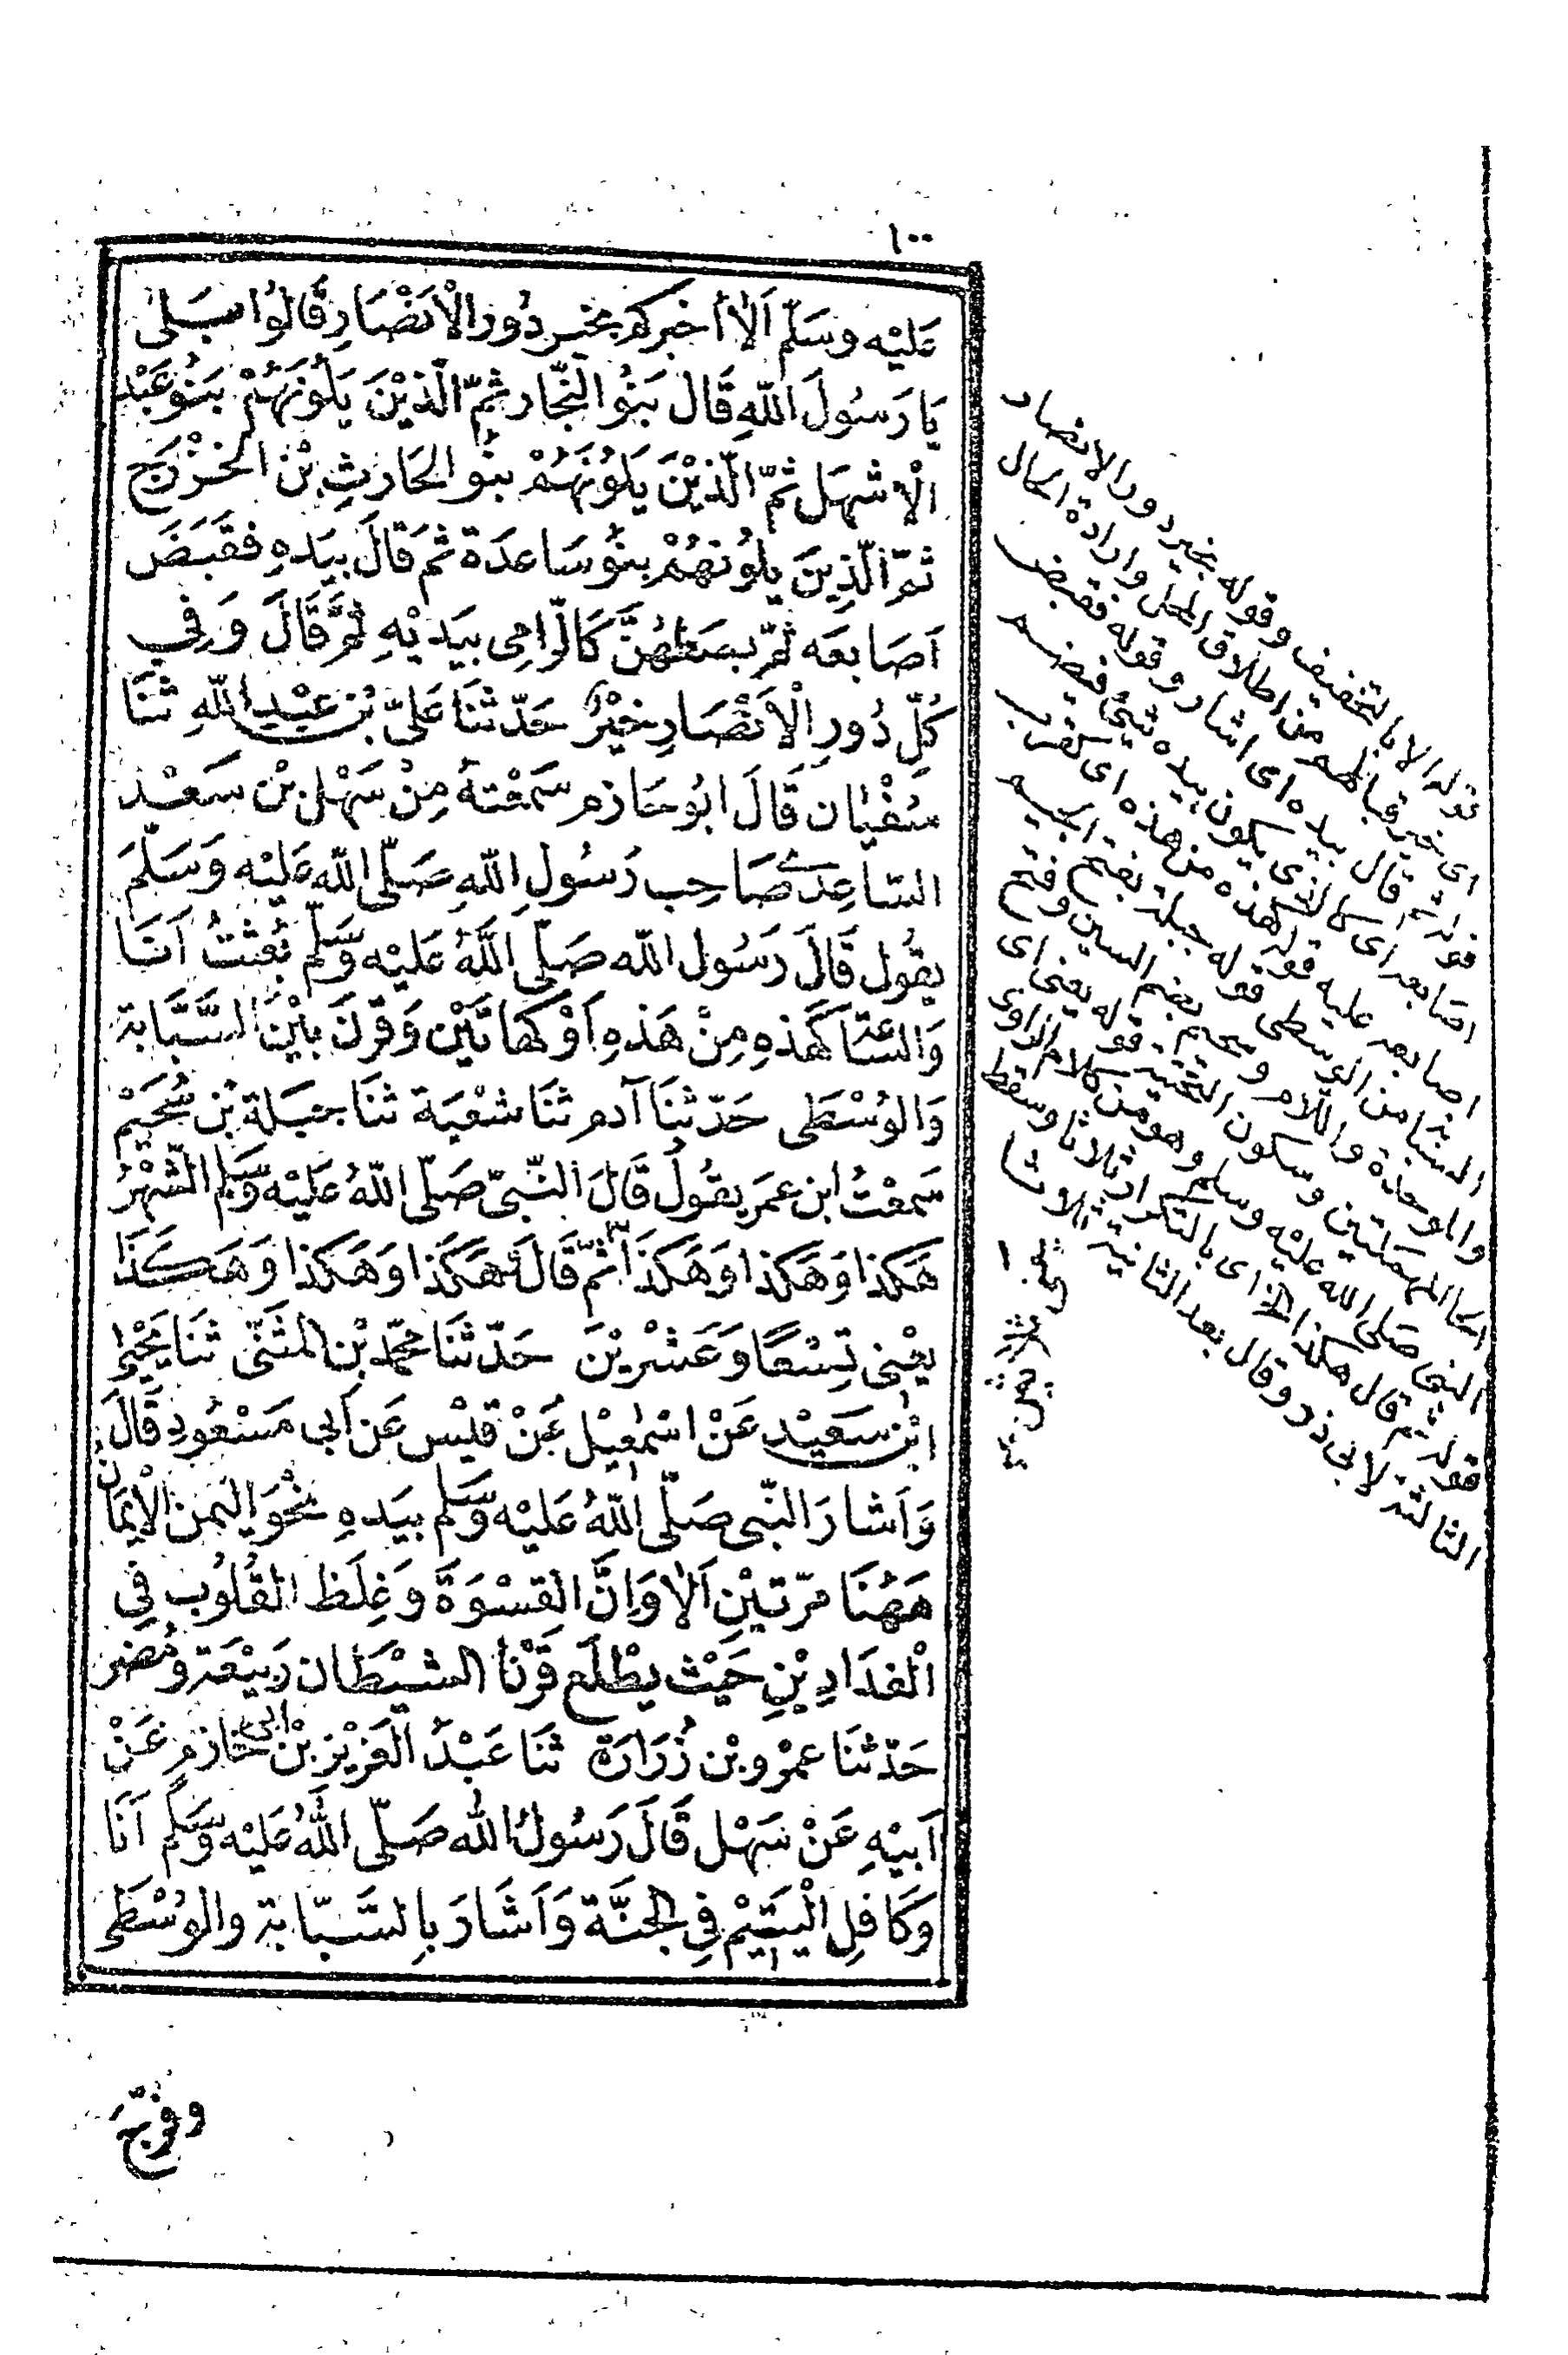 ١٠٠
عَلَيْه وسَلّم اَلاَ اُخبركم بخير دُور الْاَنْصَارِ قَالوُا بَلٰى
يَا رَسُولَ اللّهِ قَالَ بَنُو النّجّار ثمّ الّذِيْنَ يَلُونَهُمْ بَنُو عَبْد
الْاشهَل ثمّ الّذِيْنَ يَلُوْنَهُمْ بنُو الحَارثِ بْن الخَزْرَج
ثمّ الّذِينَ يلُونَهُمْ بنُو سَاعدَة ثمَ قَالَ بيَدهِ فقَبَضَ
اَصَابعَه ثمّ بسَطهُنَّ كَالرّامِى بيَديْهِ ثمَّ قَالَ وَفِي
كُلّ دُورِ الْاَنْصَارِ خيْرٌ حَدّثنَا عَلىّ بْن عَبْد اللّهِ ثنَا
سُفْيَان قَالَ ابُو حَازم سَمعْتهُ مِنْ سَهْل بْن سَعْد
السّاعِدى صَاحِب رَسُولِ اللّهِ صَلّى اللّه عَلَيْه وَسَلّمَ
يقُول قَالَ رَسُول اللّه صَلّى اللّهُ عَلَيْه وسَلّم بُعثْتُ اَنَا
وَالسّاعة كَهَذهِ مِنْ هَذهِ اَوْ كهَاتَيْن وَقرَنَ بيْنَ السَّبَّابة
وَالوُسْطَى حَدّثنَا آدم ثنَا شعْبَة ثنَا جبَلة بْن سُحَيْم
سَمعْتُ ابن عمَر يقُولُ قَالَ النّبىّ صَلّى اللّهُ عَلَيْه وسَلم الشّهْرُ
هَكذا وَهَكذا وَهَكذَا ثمّ قَالَ وَهَكَذا وَهَكذا وَهَكَذَا
يعْنى تِسْعًا وَعَشْريْنَ حَدّثنَا محمّد بْن المثَنّى ثنَا يَحْيٰى
ابْن سَعيْد عَنْ اسْمٰعِيْل عَنْ قيْس عَن اَبى مَسْعُودٍ قَالَ
وَاَشارَ النّبى صَلّى اللّهُ عَلَيْه وسَلم بيَدهِ نَحْوَ اليمن الْايْمَانُ
هَهُنَا مرّتيْنِ اَلاَ وَاِنَّ القسْوَةَ وَغِلَظ القُلوُب فِى
الْفدَادِيْنِ حَيْث يطْلَع قَرْنَا الشيْطَان رَبيْعَة ومُضر
حَدّثنَا عمْرو بْن زُرَارَة ثنَا عَبْدُ الْعَزيْز بْن ابى حَازم عَنْ
اَبيْهِ عَنْ سَهْل قَالَ رَسُولُ اللّه صَلّى اللّهُ عَلَيْه وسَلّم اَنَا
وَكَافِل الْيَتيْم فِى الجنَّة وَاَشَارَ بِالسَّبّابَة والوُسْطَى
وفرّج
قوله الا بالتخفيف وقوله بخير دور الانصار
اى خير قبائلهم من اطلاق المحل وارادة الحال
قوله ثم قال بيده اى اشار وقوله فقبض
اصابعه اى كالذى يكون بيده شئ فيضم
اصابعه عليه قوله كهذه من هذه اى كقرب
السبابة من الوسطى قوله جبلة بفتح الجيم
والموحدة واللام وسحيم بضم السين وفتح
الحاء المهملتين وسكون التحتية قوله يعنى اى
النبى صلى الله عليه وسلم وهو من كلام الراوى
قوله ثم قال هكذا الخ اى بالتكرار ثلاثا وسقط
الثالثة لابى ذر وقال بعد الثانية ثلاثا